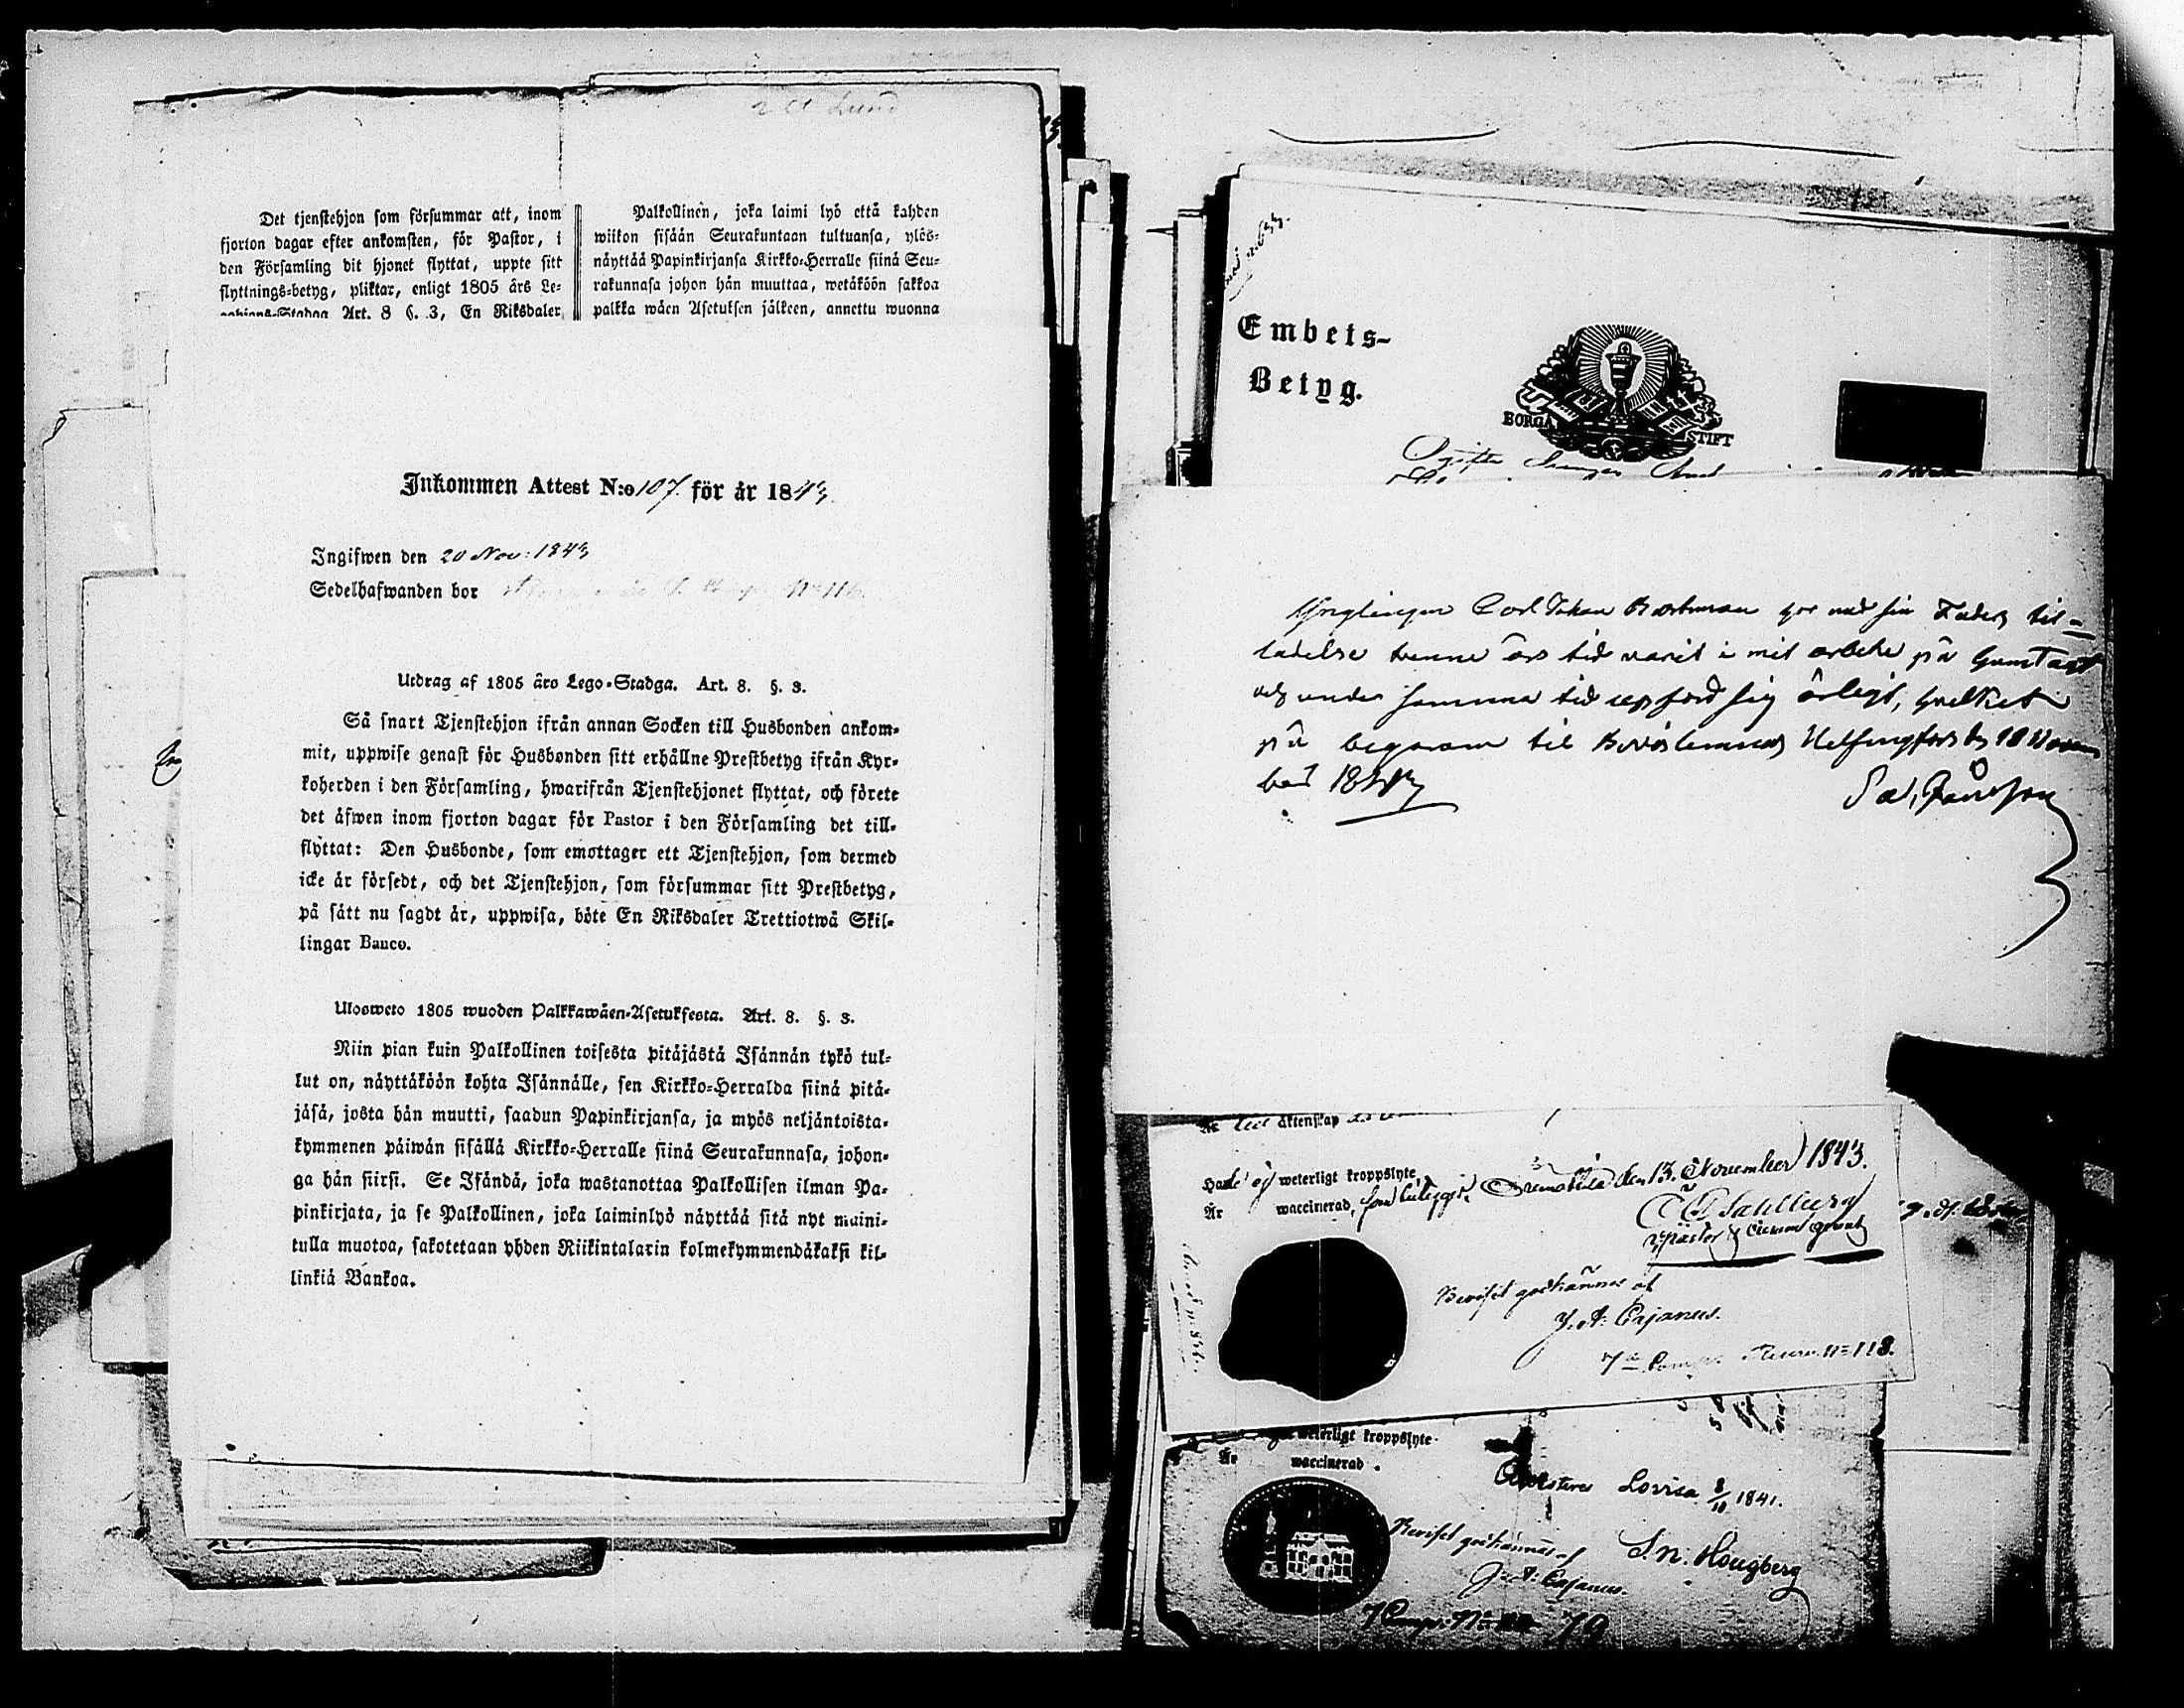 Det tjenstehjon som försummar att, inom
fjorton dagar efter ankomsten, för Pastor, i
den Församling dit hjonet flyttat, uppte sitt
flyttnings-betyg, pliktar, enligt 1805 års Le-
gohjons-Stadga Art. 8 §. 3, En Riksdaler
Palkollinen, joka laimi lyö että kahden
wiikon sisään Seurakuntaan tultuansa, ylös-
näyttää Papinkirjansa Kirkko-Herralle siinä Seu-
rakunnasa johon hän muuttaa, wetäköön sakkoa
palkka wäen Asetuksen jälkeen, annettu wuonna
Inkommen Attest N:o 107. för år 1843.
Ingifwen den 20 Nov: 1843
Sedelhafwanden bor
Utdrag af 1805 års Lego-Stadga. Art. 8. §. 3.
Så snart Tjenstehjon ifrån annan Socken till Husbonden ankom-
mit, uppwise genast för Husbonden sitt erhållne Prestbetyg ifrån Kyr-
koherden i den Församling, hwarifrån Tjenstehjonet flyttat, och förete
det äfwen inom fjorton dagar för Pastor i den Församling det till-
flyttat: Den Husbonde, som emottager ett Tjenstehjon, som dermed
icke är försedt, och det Tjenstehjon, som försummar sitt Prestbetyg,
på sätt nu sagdt är, uppwisa, böte En Riksdaler Trettiotwå Skil-
lingar Banco.
Ulosweto 1805 wuoden Palkkawäen-Asetuksesta. Art. 8. §. 3.
Niin pian kuin Palkollinen toisesta pitäjästä Isännän tykö tul-
lut on, näyttäköön kohta Isännälle, sen Kirkko-Herralda siinä pitä-
jäsä, josta hän muutti, saadun Papinkirjansa, ja myös neljäntoista-
kymmenen päiwän sisällä Kirkko-Herralle siinä Seurakunnasa, johon-
ga hän siirsi. Se Isändä, joka wastanottaa Palkollisen ilman Pa-
pinkirjata, ja se Palkollinen, joka laiminlyö näyttää sitä nyt maini-
tulla muotoa, sakotetaan yhden Riikintalarin kolmekymmendäkaksi kil-
linkiä Bankoa.
Embets-
Betyg.
BORGÅ STIFT
Ynglingen Carl Johan Bortman har med sin Faders til-
ladelse trenne års tid varit i mit arbete på
och under samma tid upförd sig ärligt, hvilket
på begäran til Bevis lemnas Helsingfors d. 18 Novem
ber 1843
äktenskap
Hade ej weterligt kroppslyte
Är waccinerad, den 13. November 1843.
C Sahlberg
Beviset godkännes af
J. A: Cajanus.
7de Comp. N:o 118.
weterligt kroppslyte
Är waccinerad.
Attesteras Lovisa 8/10 1841.
Beviset godkännes af S. N. Hougberg
J: A: Cajanus.
7 Comp: N:o 70